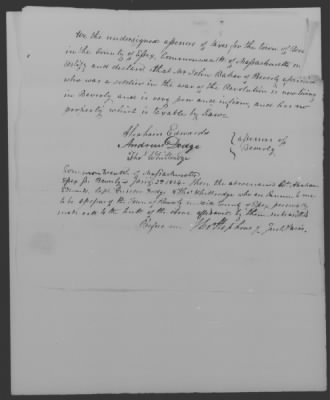 We the undersigned assessors of taxes for the town of
in the County of Essex, Commonwealth of Massachusetts
certify and declare that Mr John Baker of Beverly aforesaid
who was a soldier in the war of the Revolution is now living
in Beverly and is very poor and infirm, and has no
property which is taxable by law.
Abraham Edwards
Andrew Dodge
Thos Whittredge
assessors of
Beverly
Commonwealth of Massachusetts
Essex ss Beverly Then the abovenamed Abraham
Edwards, Dodge & Thos Whittredge who are known to me
to be assessors of the town of Beverly in said County of Essex personally
made oath to the truth of the above by them subscribed
Before me Just. Pacis.